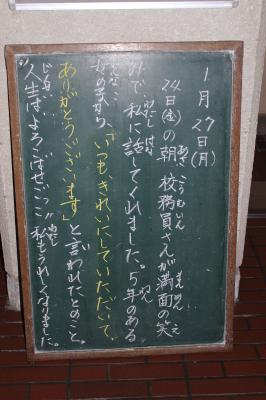 1月27日(月)
24日(金)の朝、校務員さんが満面の笑
みで、私に話してくれました。5年のある
女の子から、「いつもきれいにしていただいて、
ありがとうございます」と言われたとのこと。
人生はよろこばせごっこ!!私もうれしくなりました。